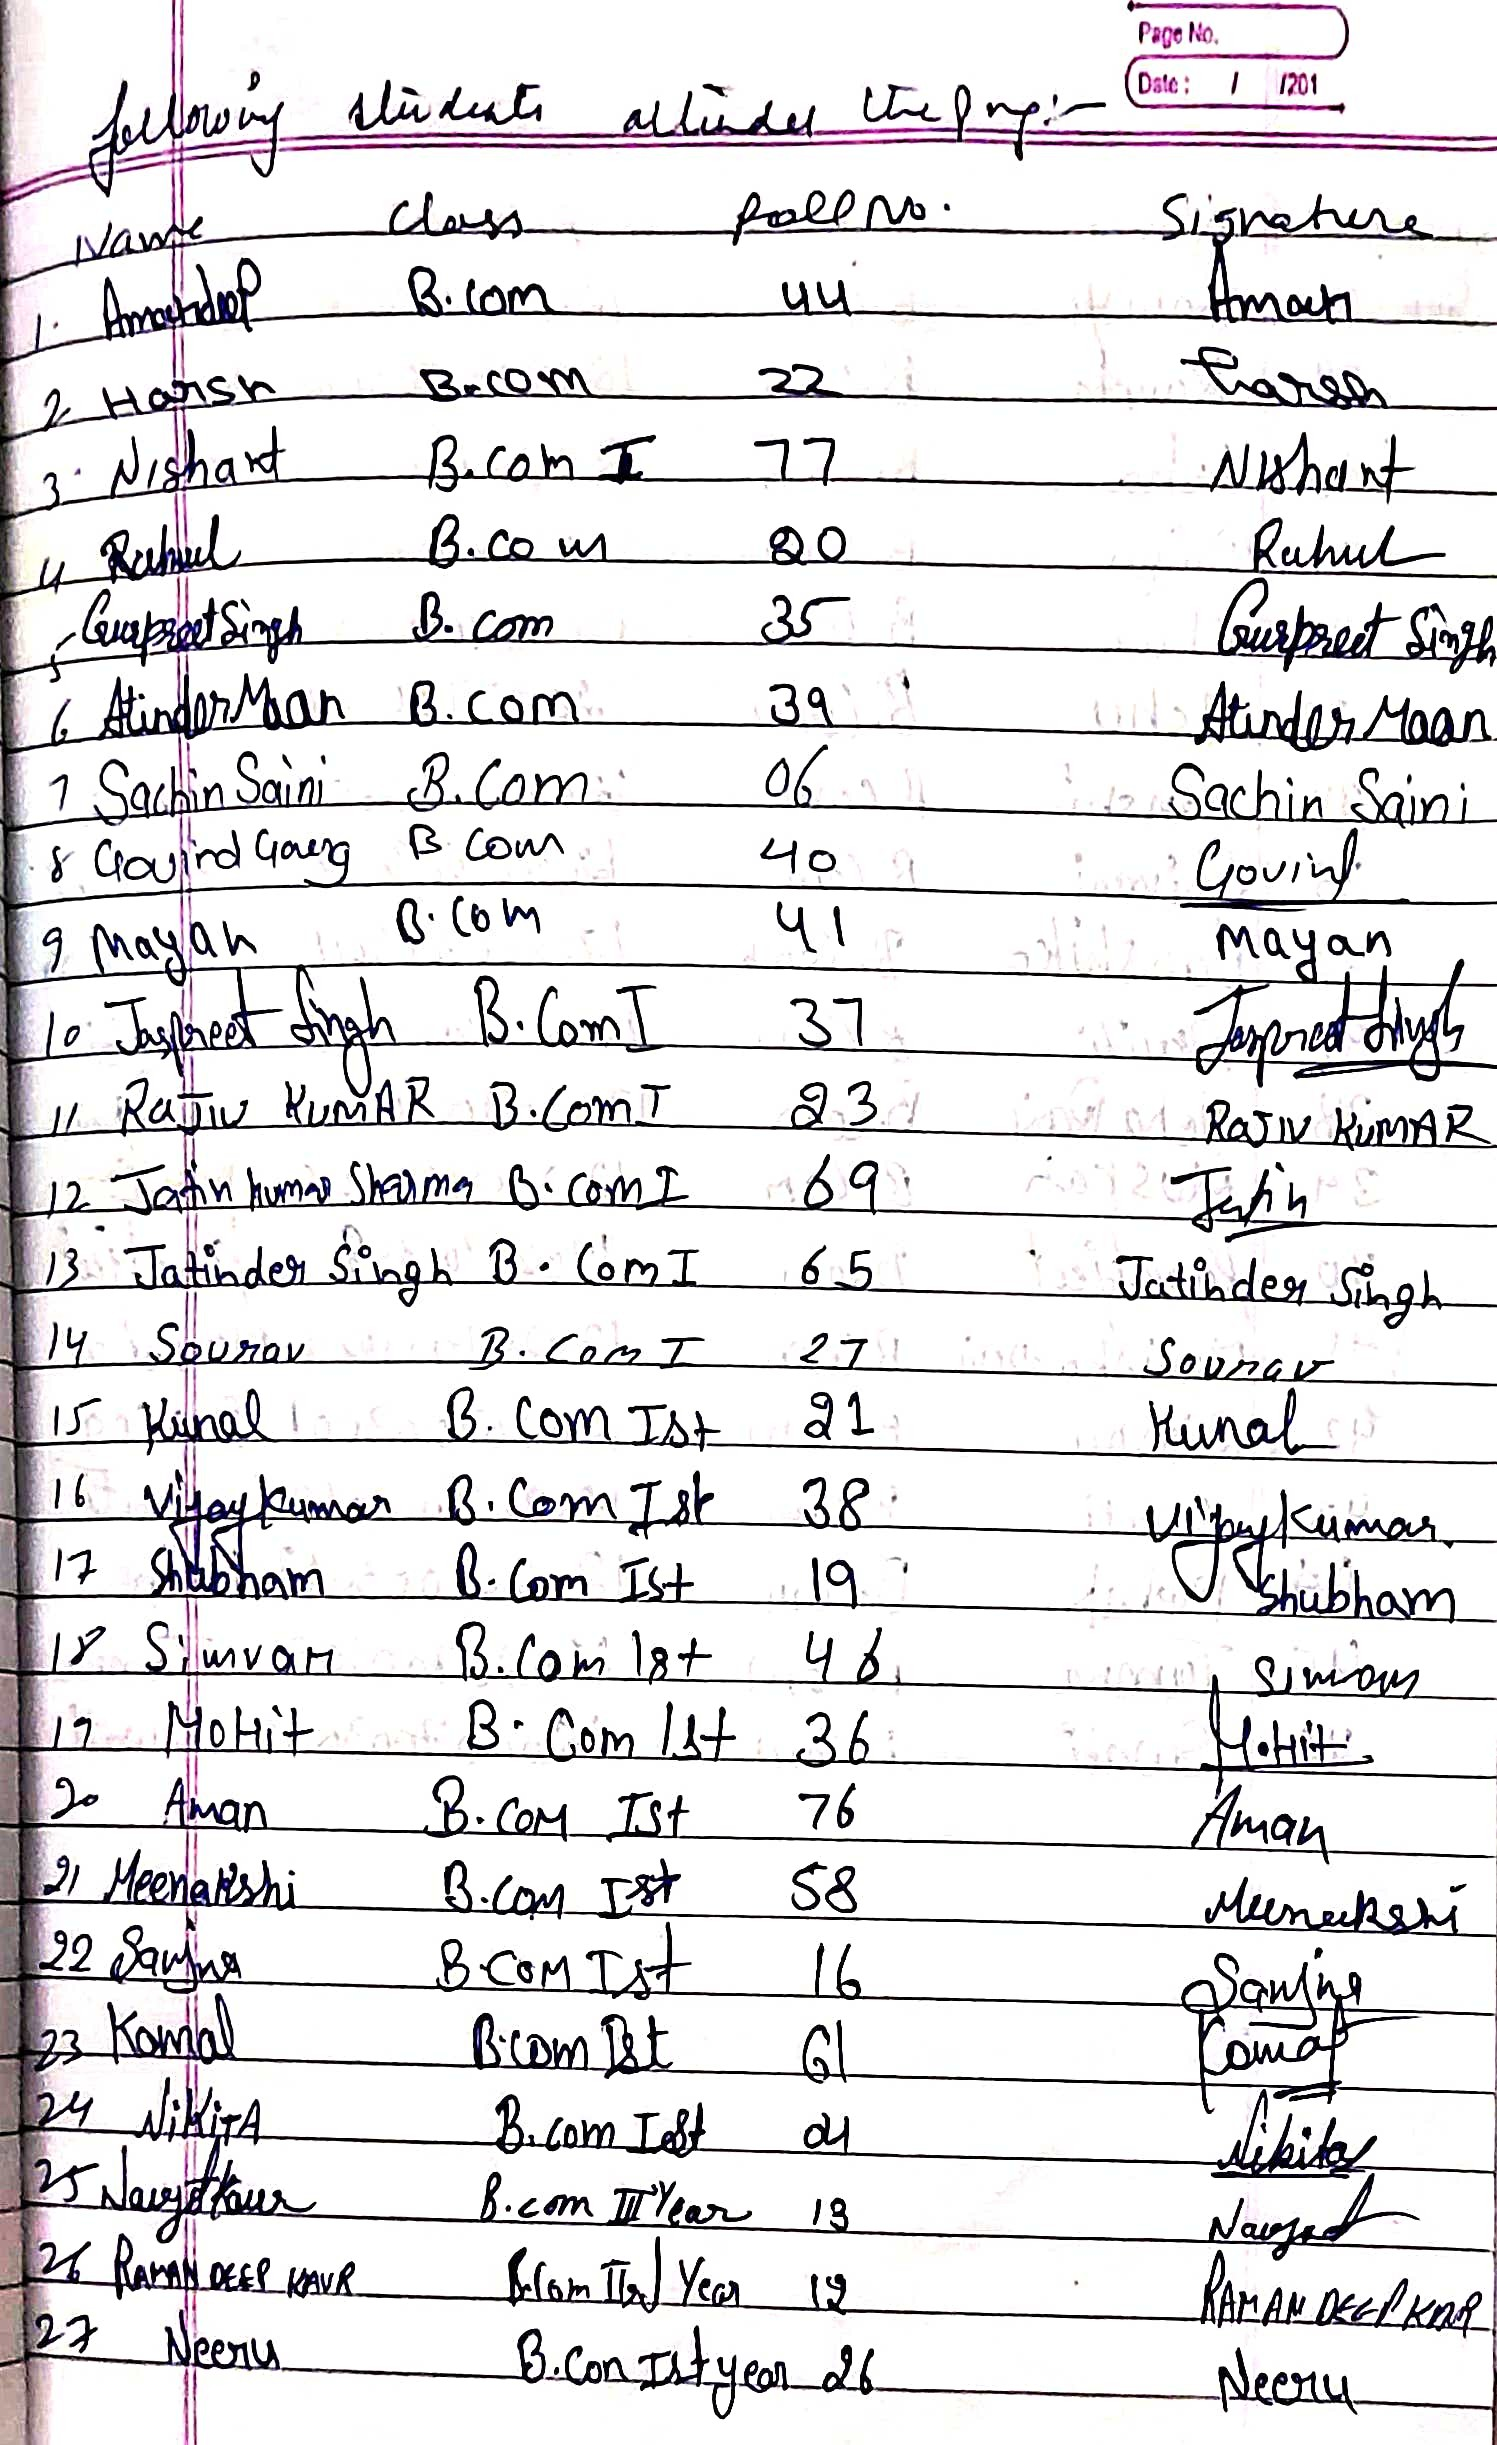 Page No.
Date: / /201
following students attended the prog:-
Name Class Roll No. Signature
1. Amandeep B.Com 44 Aman
2 Harsh B.com 22 Harsh
3. Nishant B.Com I 77 Nishant
4 Rahul B.com 20 Rahul
5 Gurpreet Singh B.com 35 Gurpreet Singh
6 Atinder Maan B.Com 39 Atinder Maan
7 Sachin Saini B.Com 06 Sachin Saini
8 Govind Garg B Com 40 Govind
9 Mayan B.Com 41 Mayan
10 Jaspreet Singh B.Com I 37 Jaspreet Singh
11 RAJIV KUMAR B.Com I 23 RAJIV KUMAR
12 Jatin kumar Sharma B.Com I 69 Jatin
13 Jatinder Singh B.Com I 65 Jatinder Singh
14 Sourav B.Com I 27 Sourav
15 Kunal B.Com Ist 21 Kunal
16 Vijay Kumar B.Com Ist 38 Vijay Kumar.
17 Shubham B.Com Ist 19 Shubham
18 Simran B.Com 1st 46 Simran
19 MoHit B.Com 1st 36 MoHit
20 Aman B.COM Ist 76 Aman
21 Meenakshi B.COM Ist 58 Meenakshi
22 Sanjna B.COM Ist 16 Sanjna
23 Komal B.com Ist 61 Komal
24 NiKiTA B.com Ist 04 Nikita
25 Navjot Kaur B.com III Year 13 Navjot
26 RAMANDEEP KAUR B.Com Year 12 RAMANDEEP KAUR
27 Neeru B.Con Ist year 26 Neeru